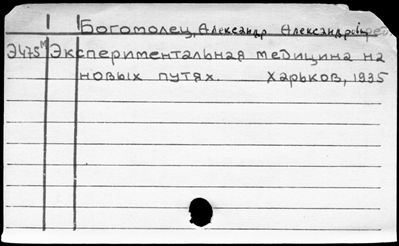 Богомолец, Александр Александрович, ред.
Э475м Экспериментальная медицина на
новых путях. Харьков, 1935